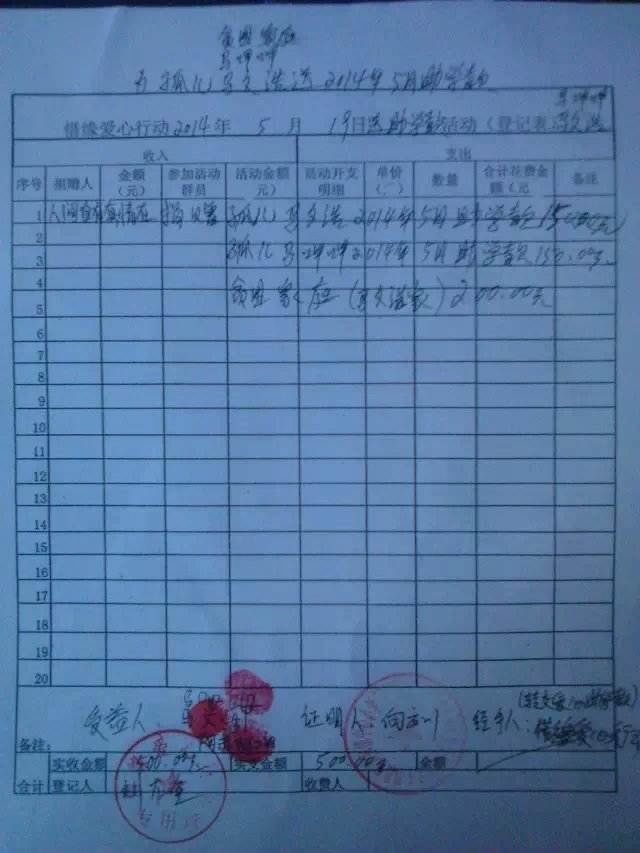 贫困家庭
马坤坤
为孤儿马文浩送2014年5月助学款
马坤坤
惜缘爱心行动2014年 5 月 19日送助学款活动（登记表
收入 支出
序号 捐赠人 金额（元） 参加活动群员 活动金额（元） 活动开支明细 单价（元） 数量 合计花费金额（元 备注
1 人间自有真情在 孤儿马文浩2014年5月助学款150.00元
2 孤儿马坤坤2014年5月助学款150.00元
3
4 贫困家庭（马文浩家）200.00元
5
6
7
8
9
10
11
12
13
14
15
16
17
18
19
20
受益人： 证明人 经手人：
备注：
实收金额 500.00元 实支金额 500.00元 余额
合计 登记人 收费人